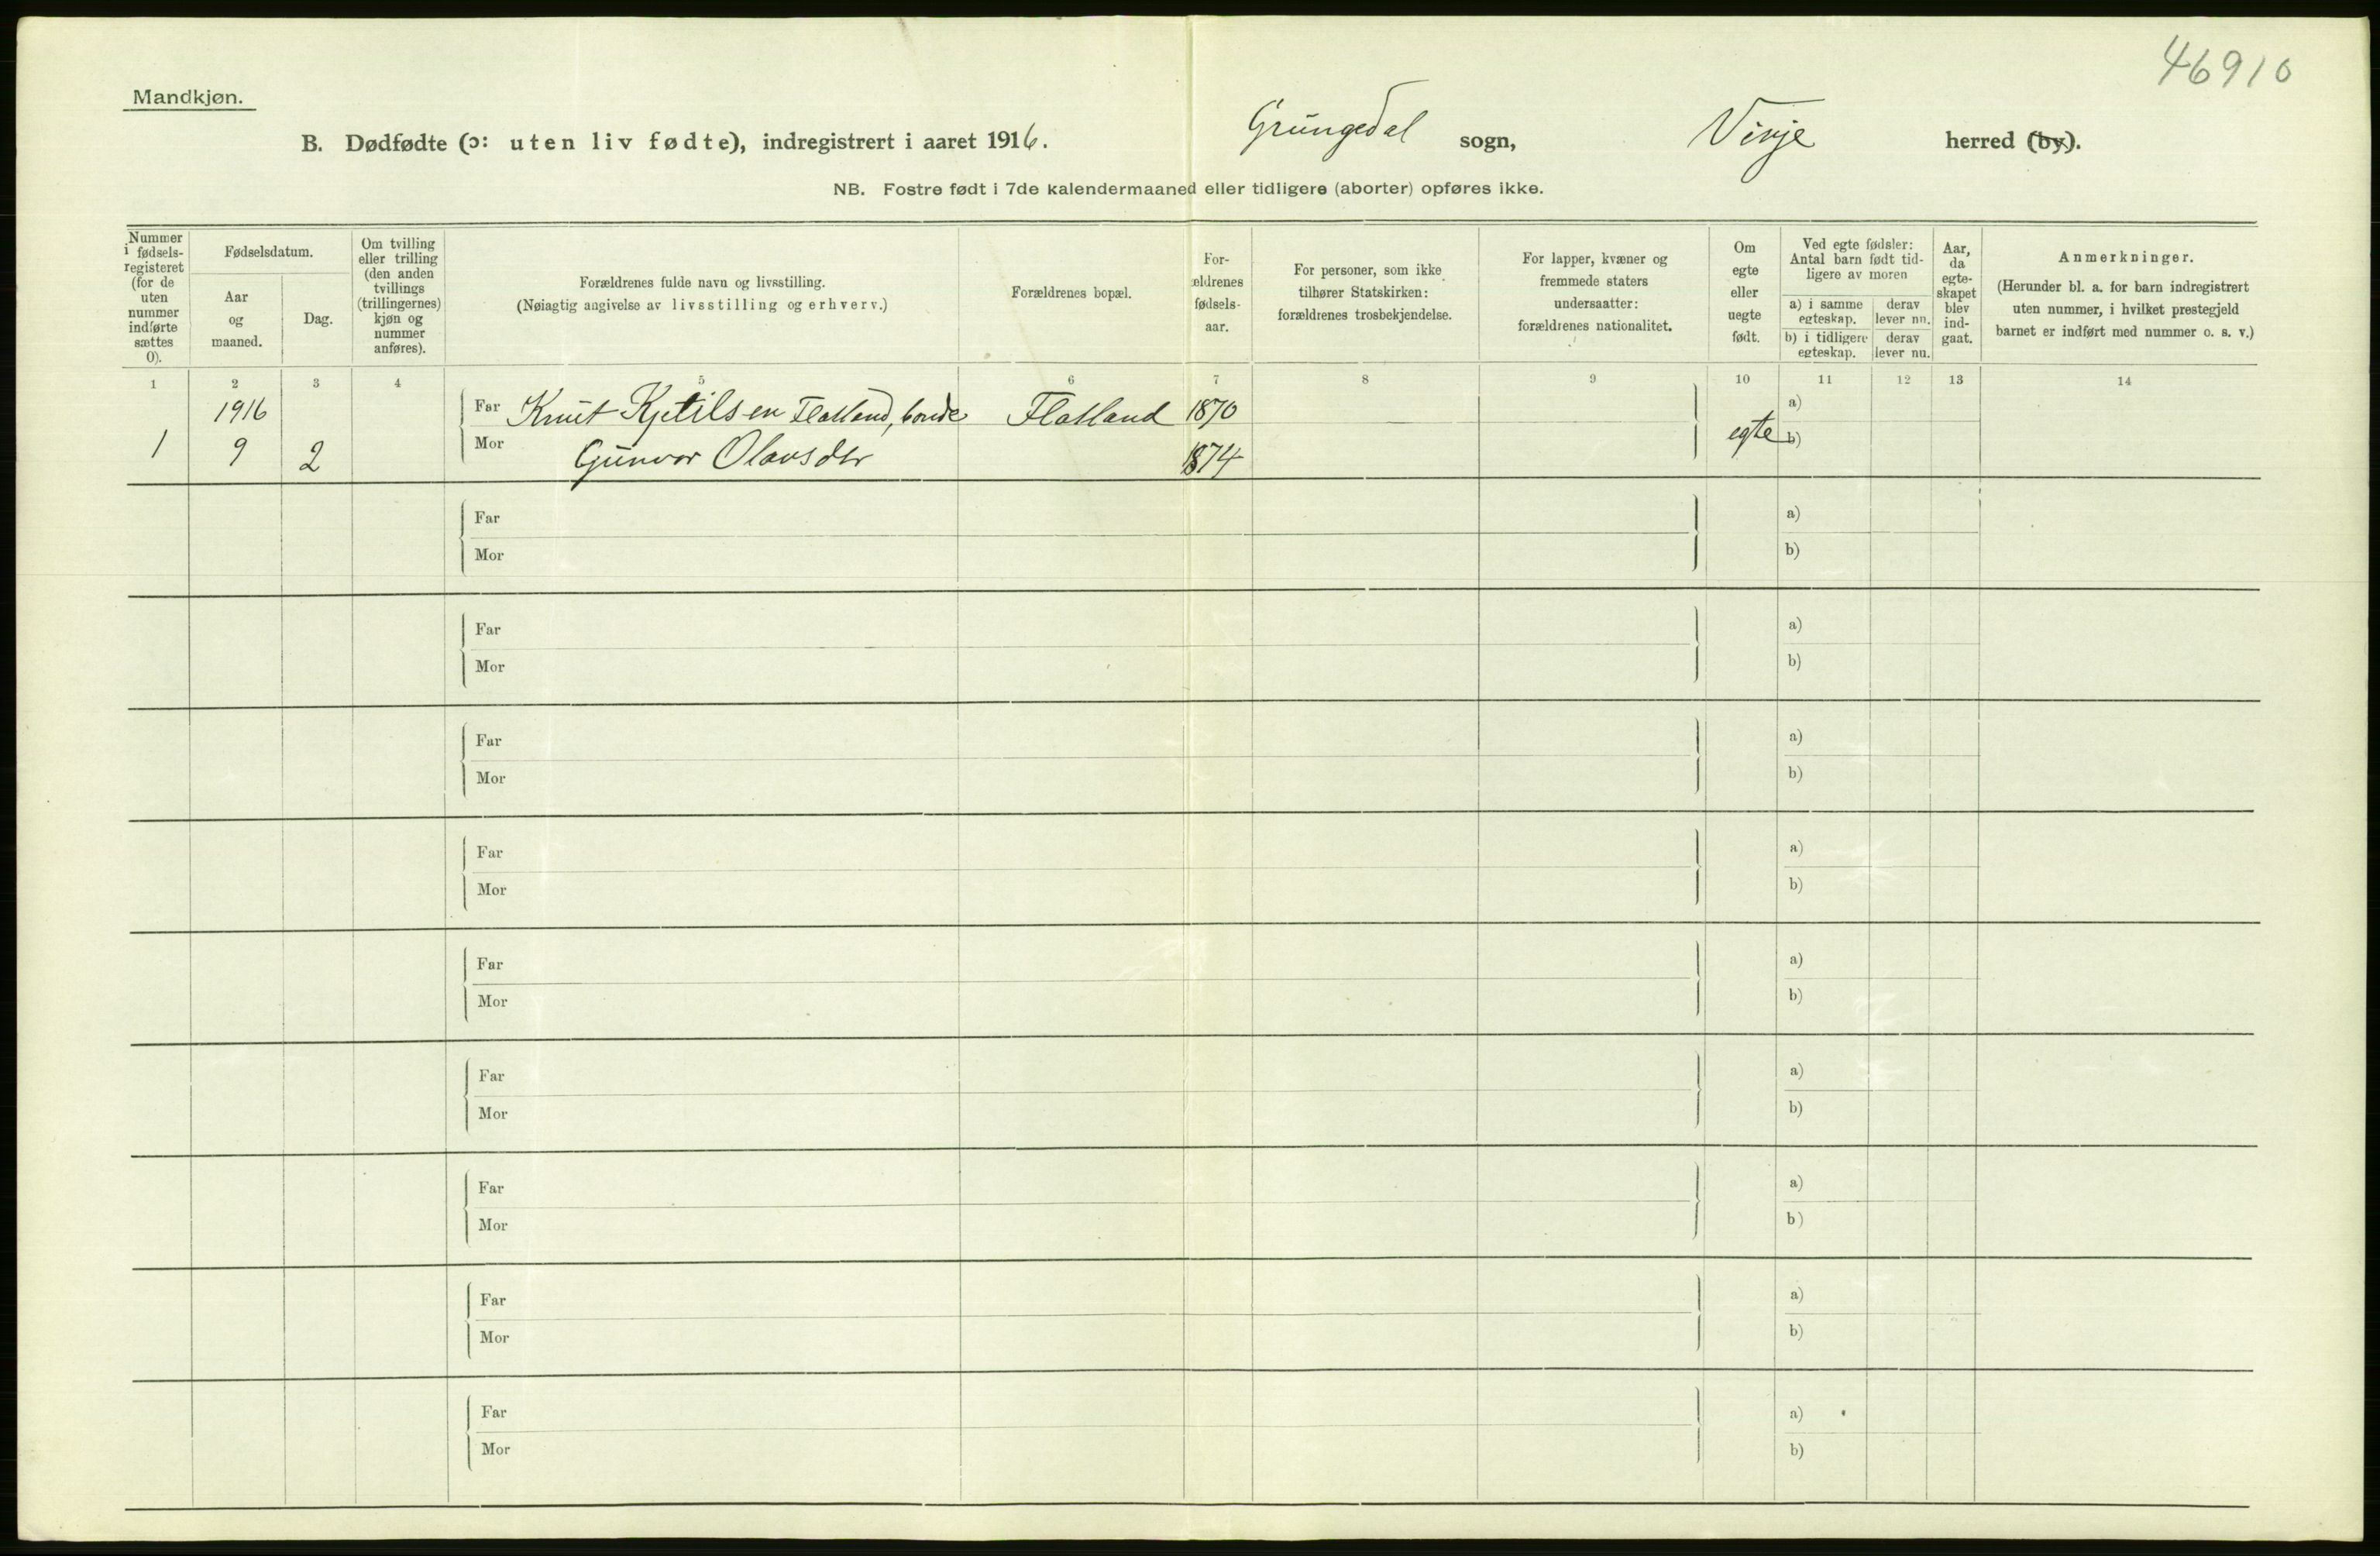 46910
Mandkjøn.
B. Dødfødte (ɔ: uten liv fødte), indregistrert i aaret 1916. Grungedal sogn, Vinje herred (by).
NB. Fostre født i 7de kalendermaaned eller tidligere (aborter) opføres ikke.
Nummer
i fødsels-
registeret
(for de
uten
nummer
indførte
sættes
0).
Fødselsdatum.
Aar
og
maaned.
Dag.
Om tvilling
eller trilling
(den anden
tvillings
(trillingernes)
kjøn og
nummer
anføres).
Forældrenes fulde navn og livsstilling.
(Nøiagtig angivelse av livsstilling og erhverv.)
Forældrenes bopæl.
For-
ældrenes
fødsels-
aar.
For personer, som ikke
tilhører Statskirken:
forældrenes trosbekjendelse.
For lapper, kvæner og
fremmede staters
undersaatter:
forældrenes nationalitet.
Om
egte
eller
uegte
født.
Ved egte fødsler:
Antal barn født tid-
ligere av moren
a) i samme
egteskap.
derav
lever nu.
b) i tidligere
egteskap.
derav
lever nu.
Aar,
da
egte-
skapet
blev
ind-
gaat.
Anmerkninger.
(Herunder bl. a. for barn indregistrert
uten nummer, i hvilket prestegjeld
barnet er indført med nummer o. s. v.)
1 2 3 4 5 6 7 8 9 10 11 12 13 14
1916 Far Knut Kjetilsen Flatland, bonde Flatland 1870 a)
1 9 2 Mor Gunvor Olavsdtr 1874 egte b)
Far a)
Mor b)
Far a)
Mor b)
Far a)
Mor b)
Far a)
Mor b)
Far a)
Mor b)
Far a)
Mor b)
Far a)
Mor b)
Far a)
Mor b)
Far a)
Mor b)